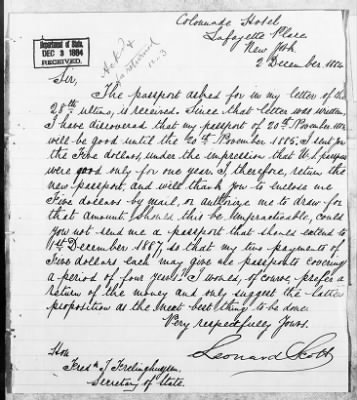 Colonnade Hotel
Lafayette Place
New York
2 December 1884
Department of State,
DEC 3 1884
RECEIVED.
Ack &
returned
12-3
Sir,
The passport asked for in my letter of the
28th ultimo, is received. Since that letter was written
I have discovered that my passport of 20th November 188
will be good until the 20th November 1885. I sent you
the Five dollars, under the impression that U.S. passports
were good only for one year. I therefore, return the
new passport, and will thank you to enclose me
Five dollars by mail, or authorize me to draw for
that amount. Should this be impracticable, could
you not send me a passport that should extend to
1st December 1887, so that my two payments of
Five dollars each may give me passports covering
a period of four years? I would, of course, prefer a
return of the money and only suggest the latter
proposition as the next best thing to be done.
Very respectfully Yours.
Leonard Scott
Hon
Fredk. J. Frelinghuysen,
Secretary of State.